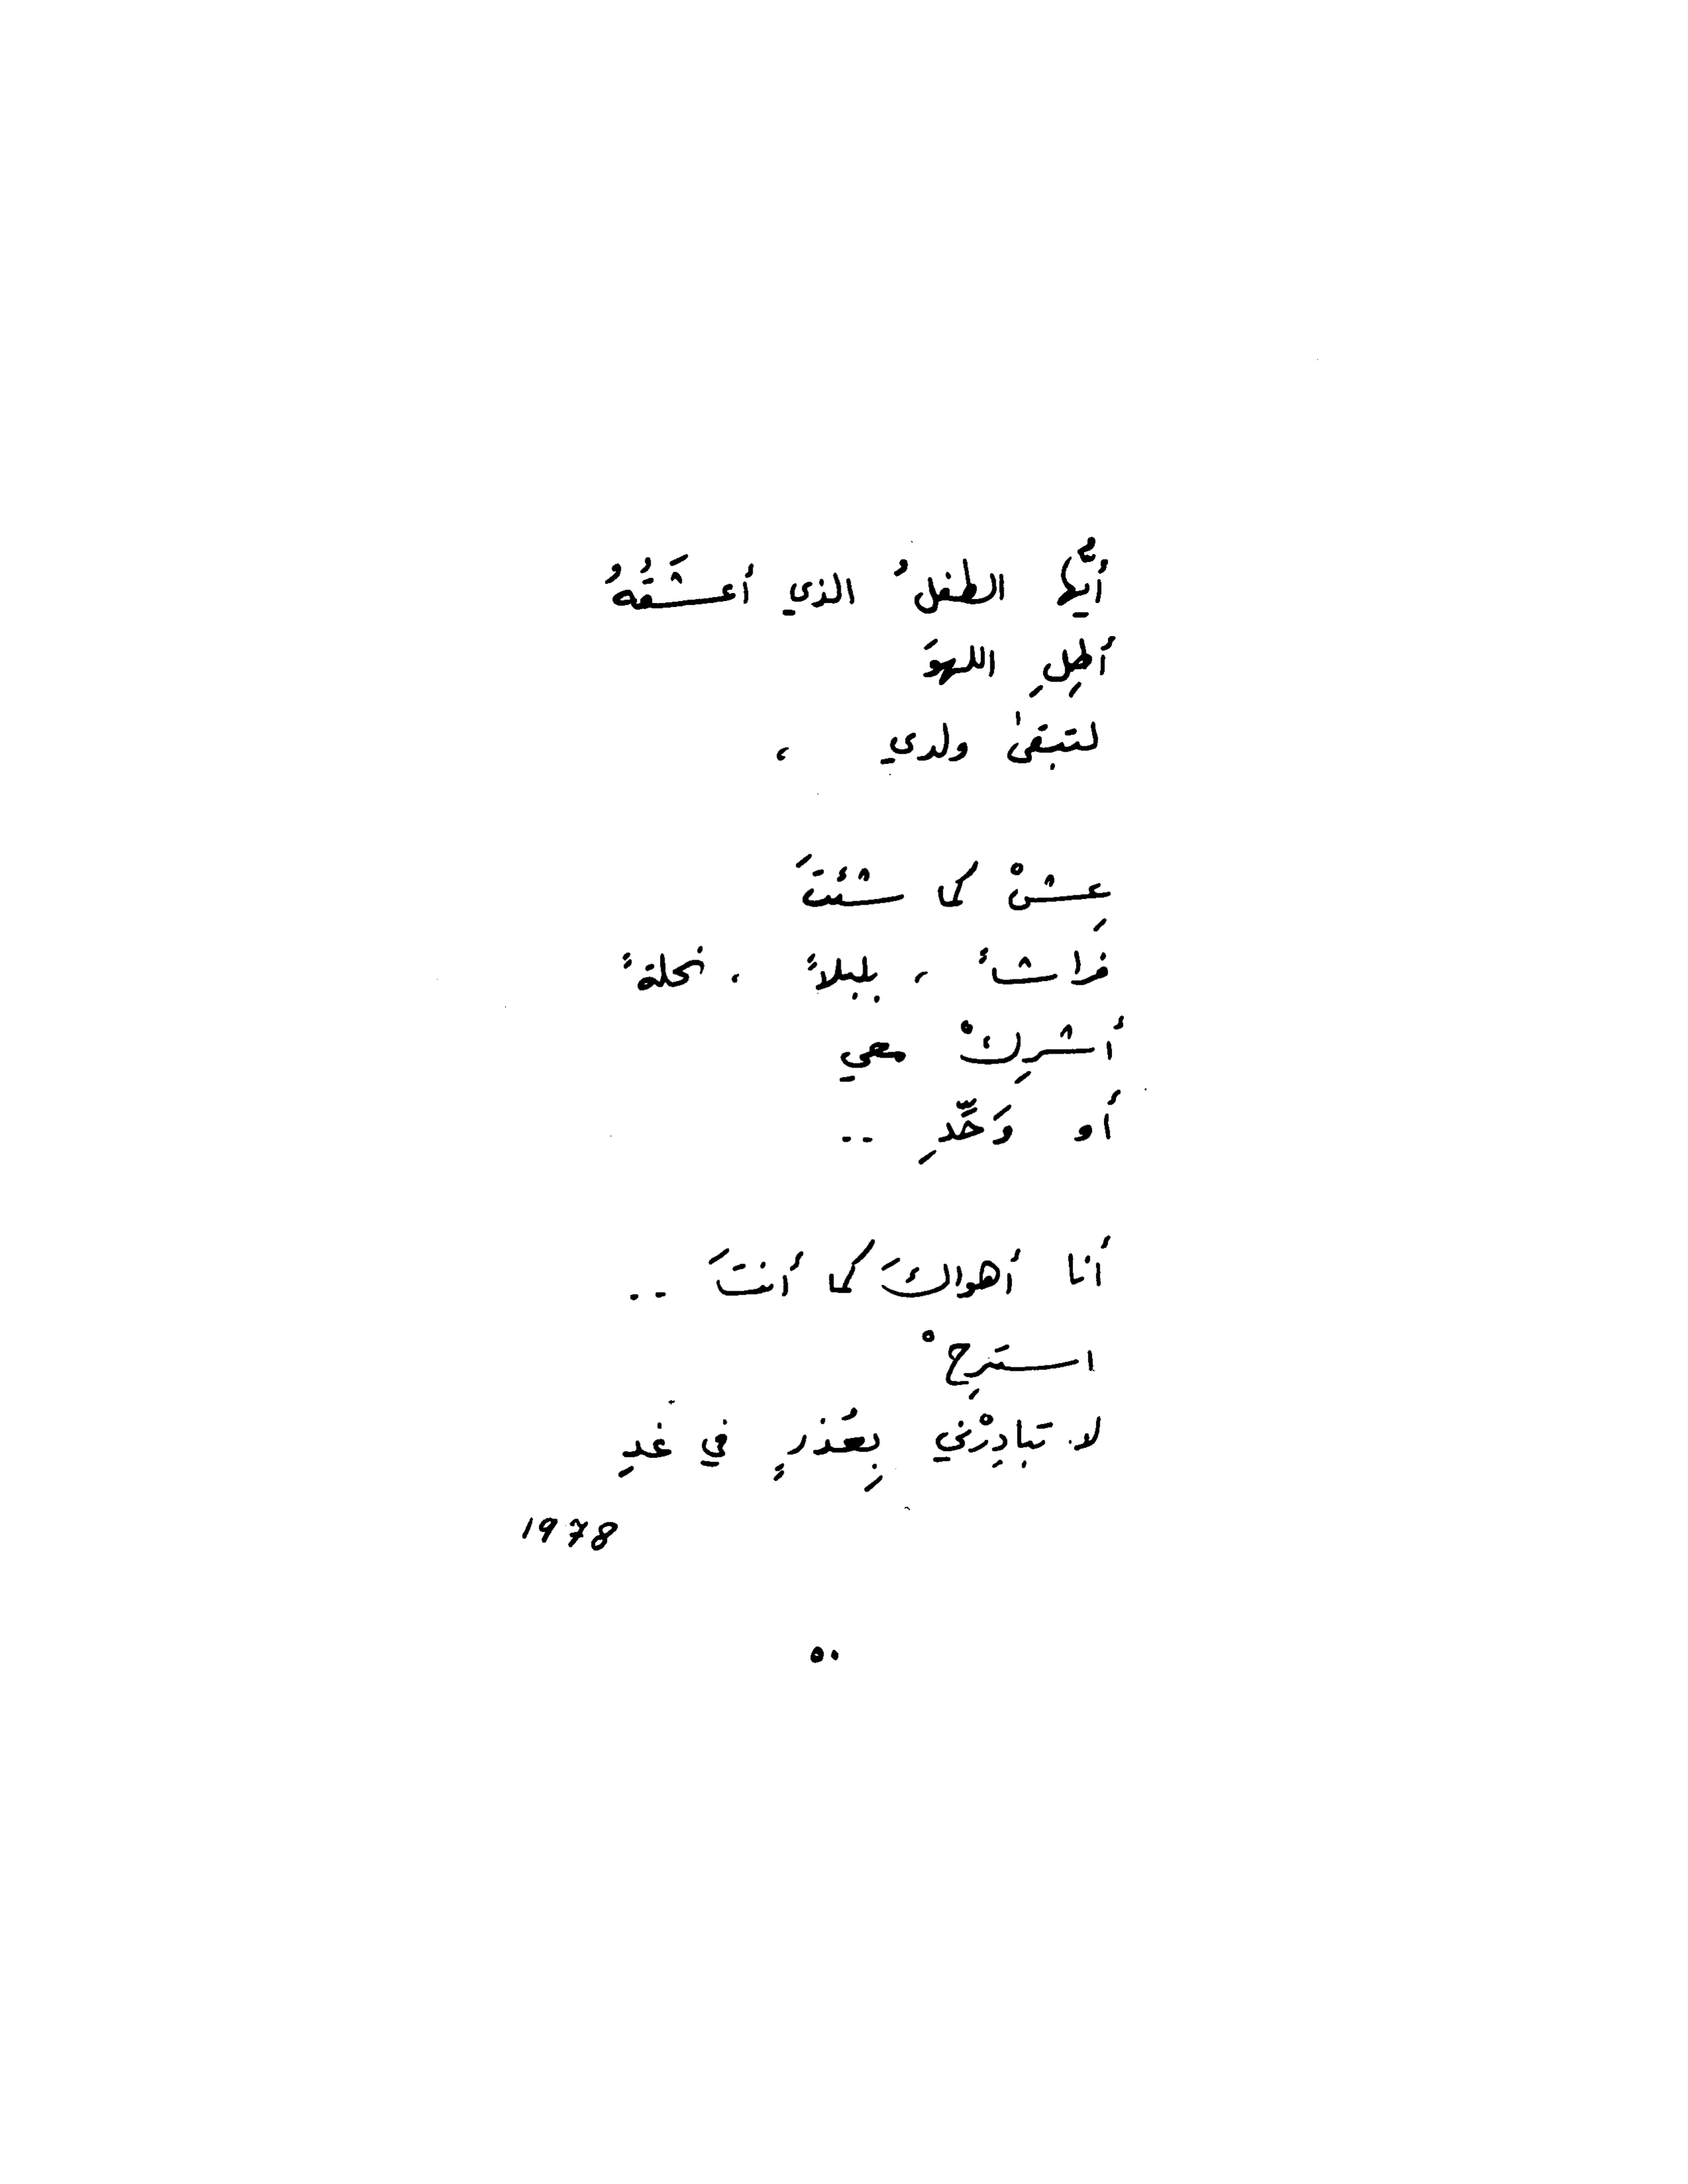 أيُّها الطفلُ الذي أعشَقُهُ
أطِلِ اللهوَ
لتبقىٰ ولدي ،
عِشْ كما شئتَ
فراشاً ، بلبلاً ، نحلةً
أشرِكْ معي
أو وَحِّدِ ..
أنا أهواكَ كما أنتَ ..
استَرِحْ
لا تبادِرْني بِعُذرٍ في غدِ
1978
٥٠